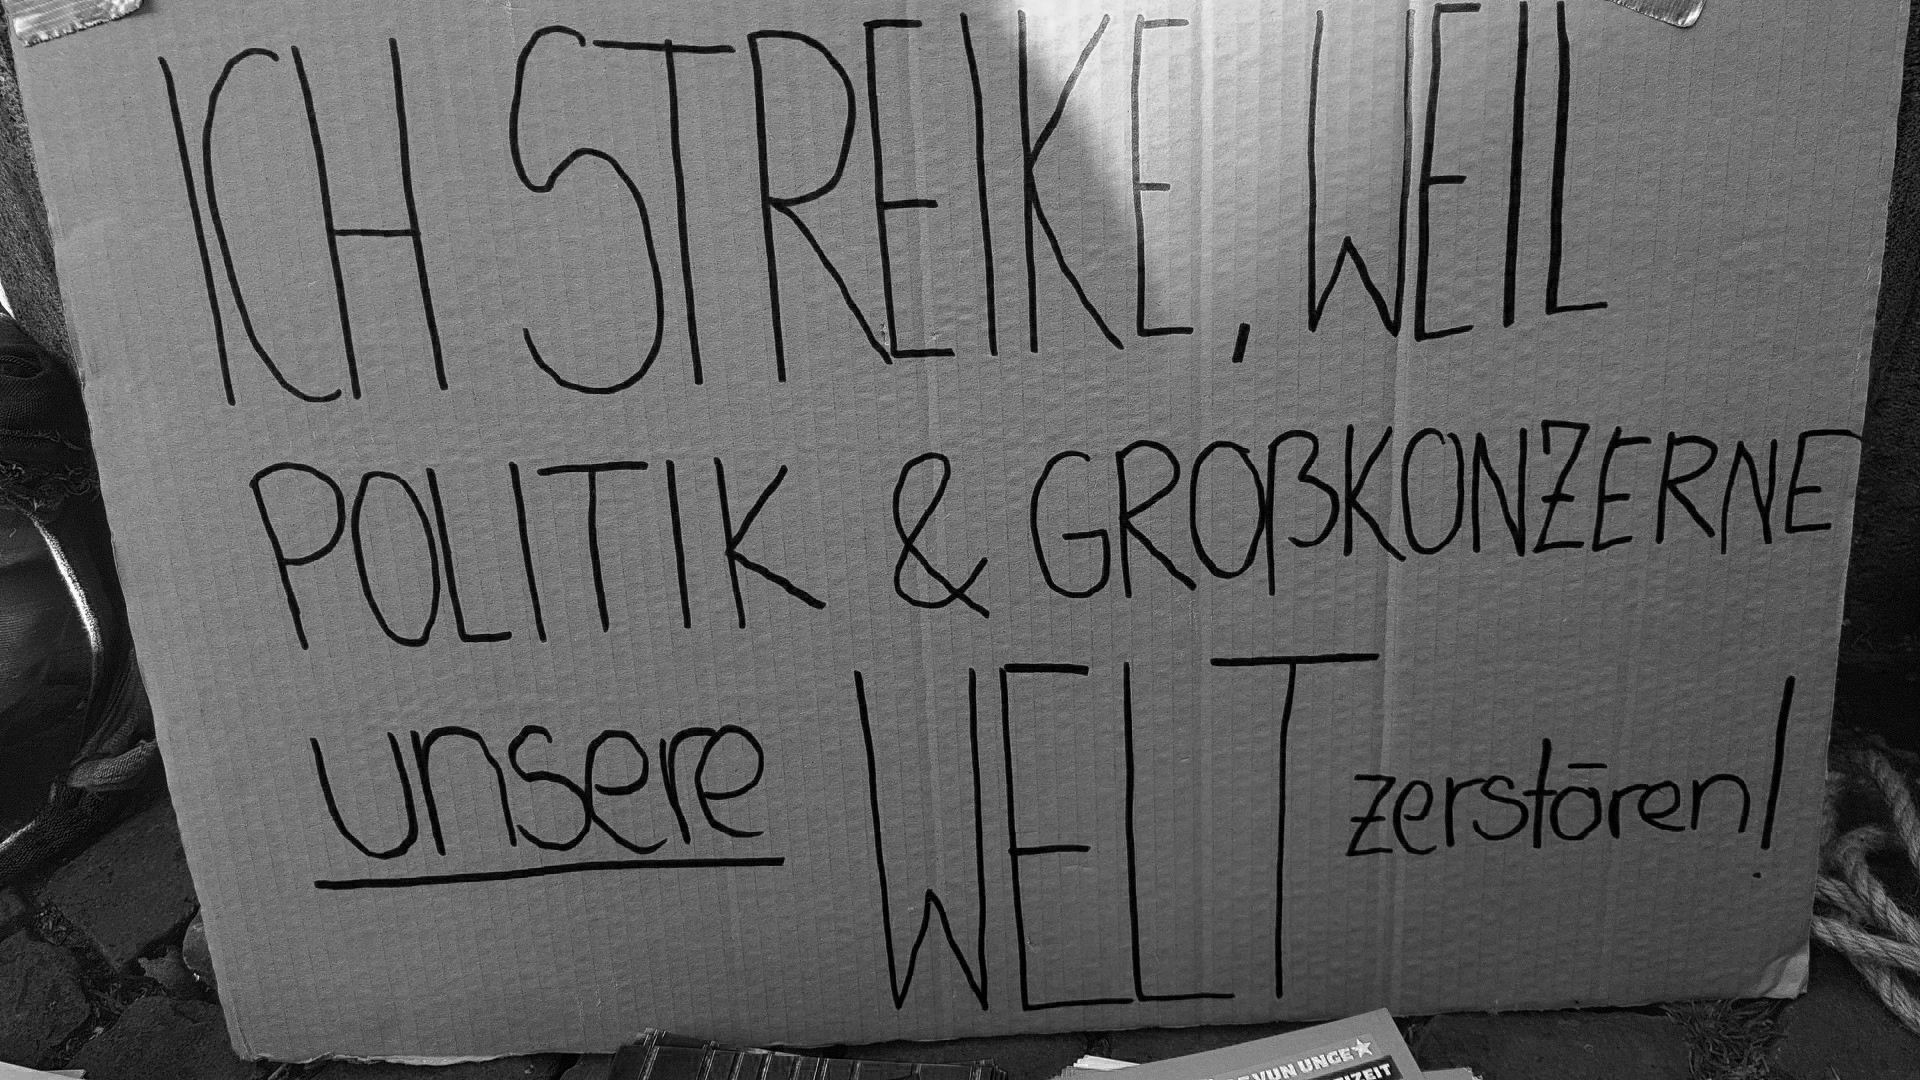 ICH STREIKE, WEIL
POLITIK & GROßKONZERNE
unsere WELT zerstören!
VUN UNGE